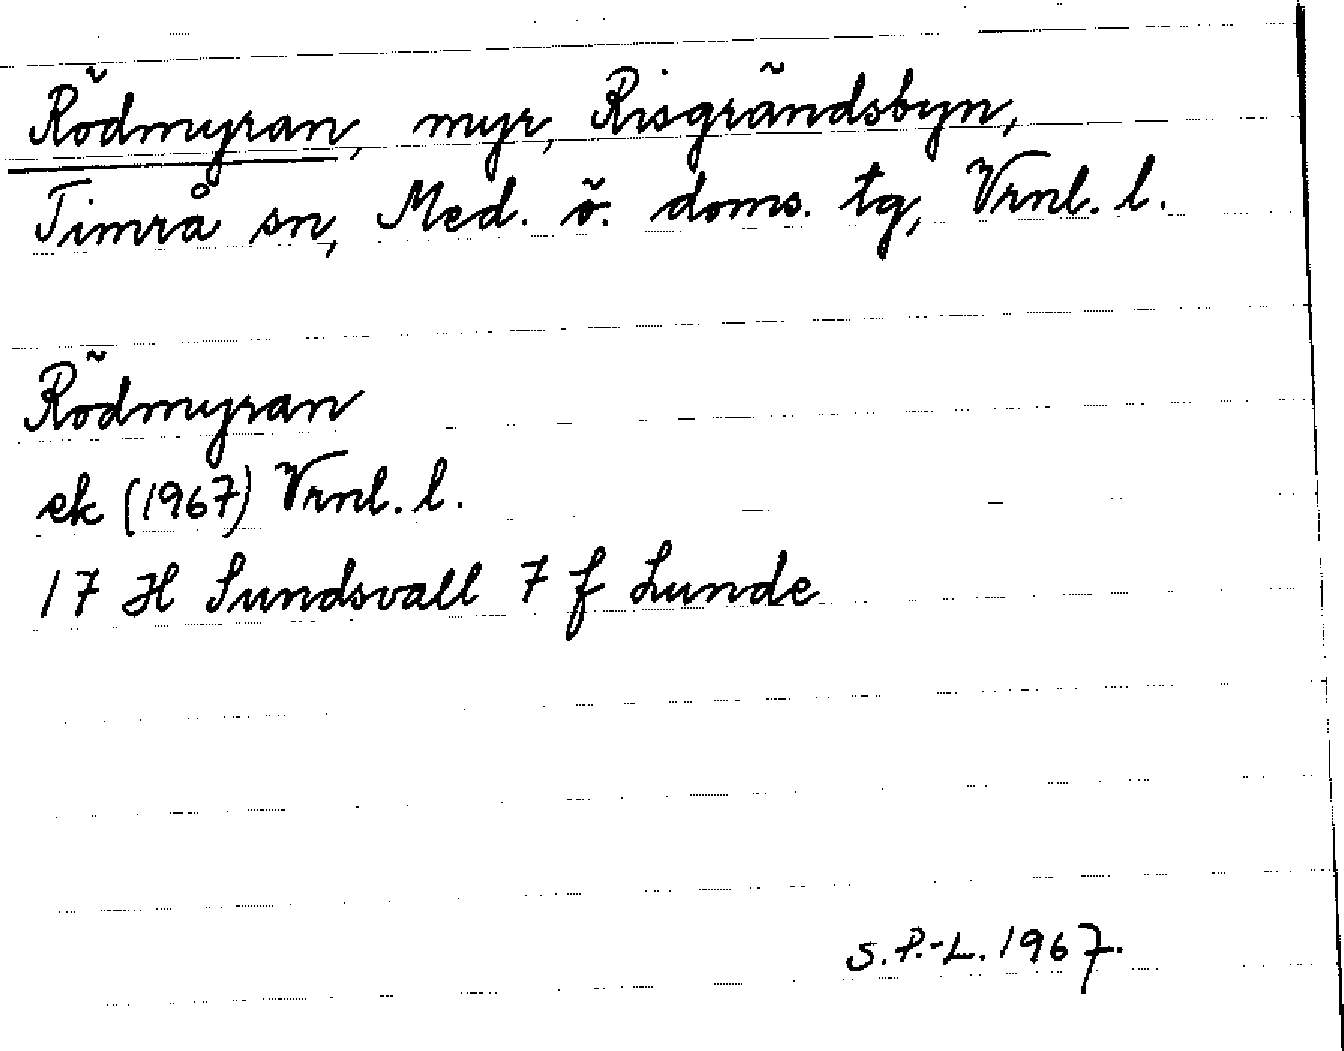 Rödmyran, myr, Risgrändsbyn,
Timrå sn, Med. ö. doms. tg, Vrnl. l.
Rödmyran
ek (1967) Vrnl. l.
17 H Sundsvall 7 f Lunde
S.P.-L. 1967.